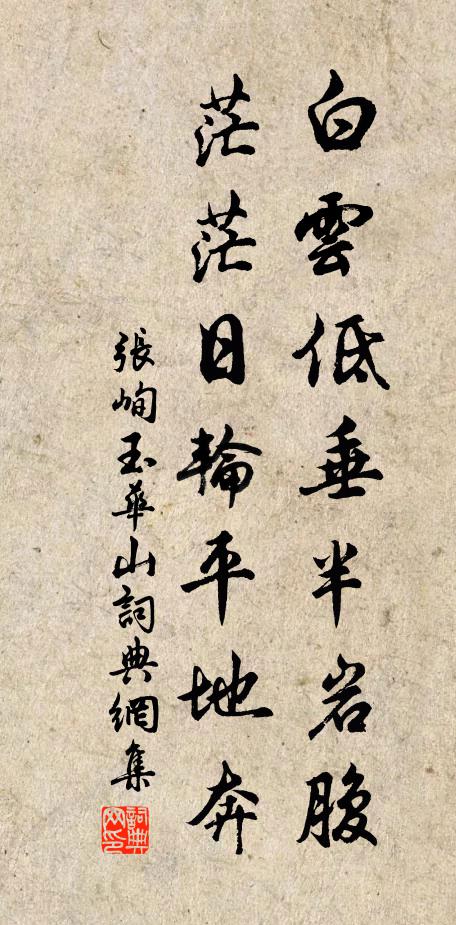 白雲低垂半岩腹
茫茫日輪平地奔
張峋玉華山詞典網集
詞典网印